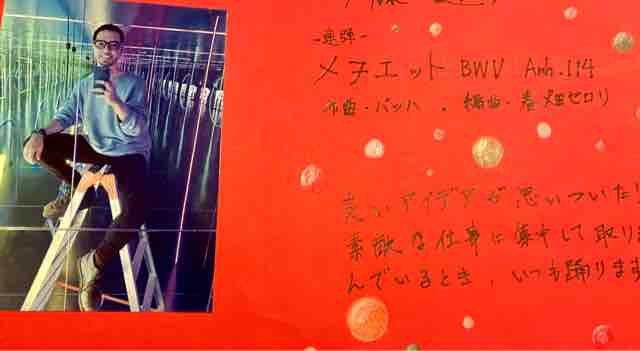 -連弾-
メヌエット BWV Anh.114
作曲・バッハ 、編曲・春畑セロリ
良いアイデアが思いついた
素敵な仕事に集中して取り
んでいるとき、いつも踊ります